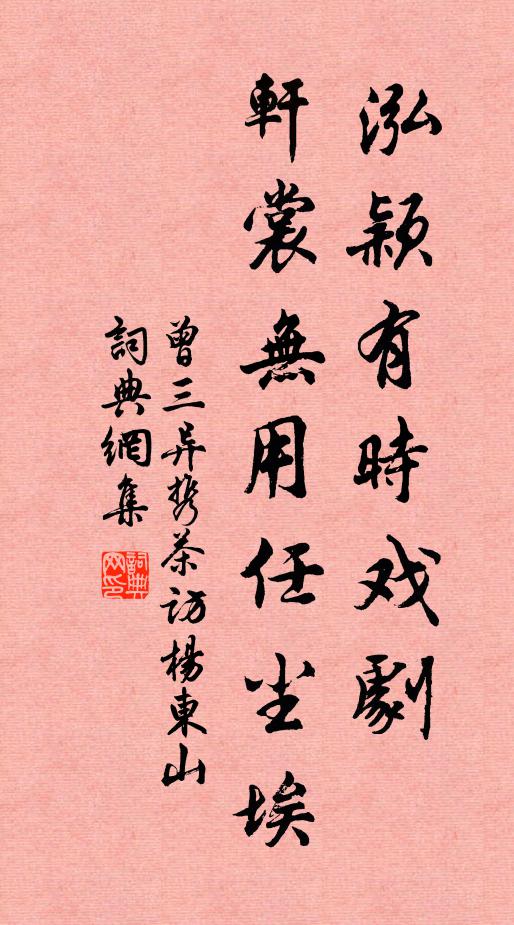 泓颖有時戏劇
軒裳無用任尘埃
曾三异携茶访楊東山
詞典網集
詞典网印